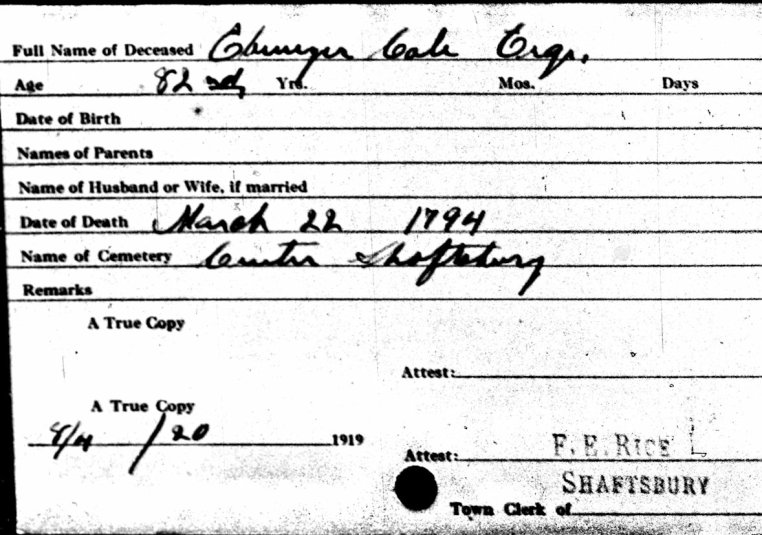 Full Name of Deceased Ebenezer Cole Esqr.
Age 82 Yrs. Mos. Days
Date of Birth
Names of Parents
Name of Husband or Wife, if married
Date of Death March 22 1794
Name of Cemetery Center Shaftsbury
Remarks
A True Copy
Attest:
A True Copy
8/4/20 1919
Attest: F. E. RICE
SHAFTSBURY
Town Clerk of